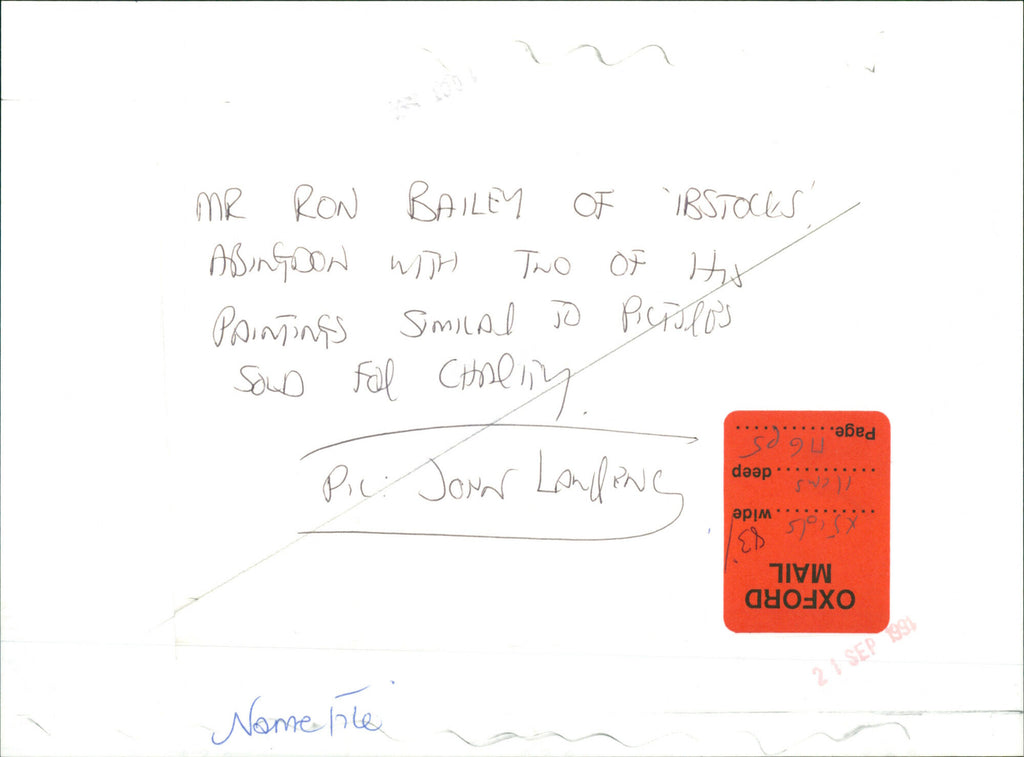 MR RON BAILEY OF 'IBSTOCKS'
ABINGDON WITH TWO OF HIS
PAINTINGS SIMILAR TO PICTURES
SOLD FOR CHARITY.
PIC: JOHN LAWRENCE
OXFORD
MAIL
wide
deep
Page
21 SEP 1991
Name File